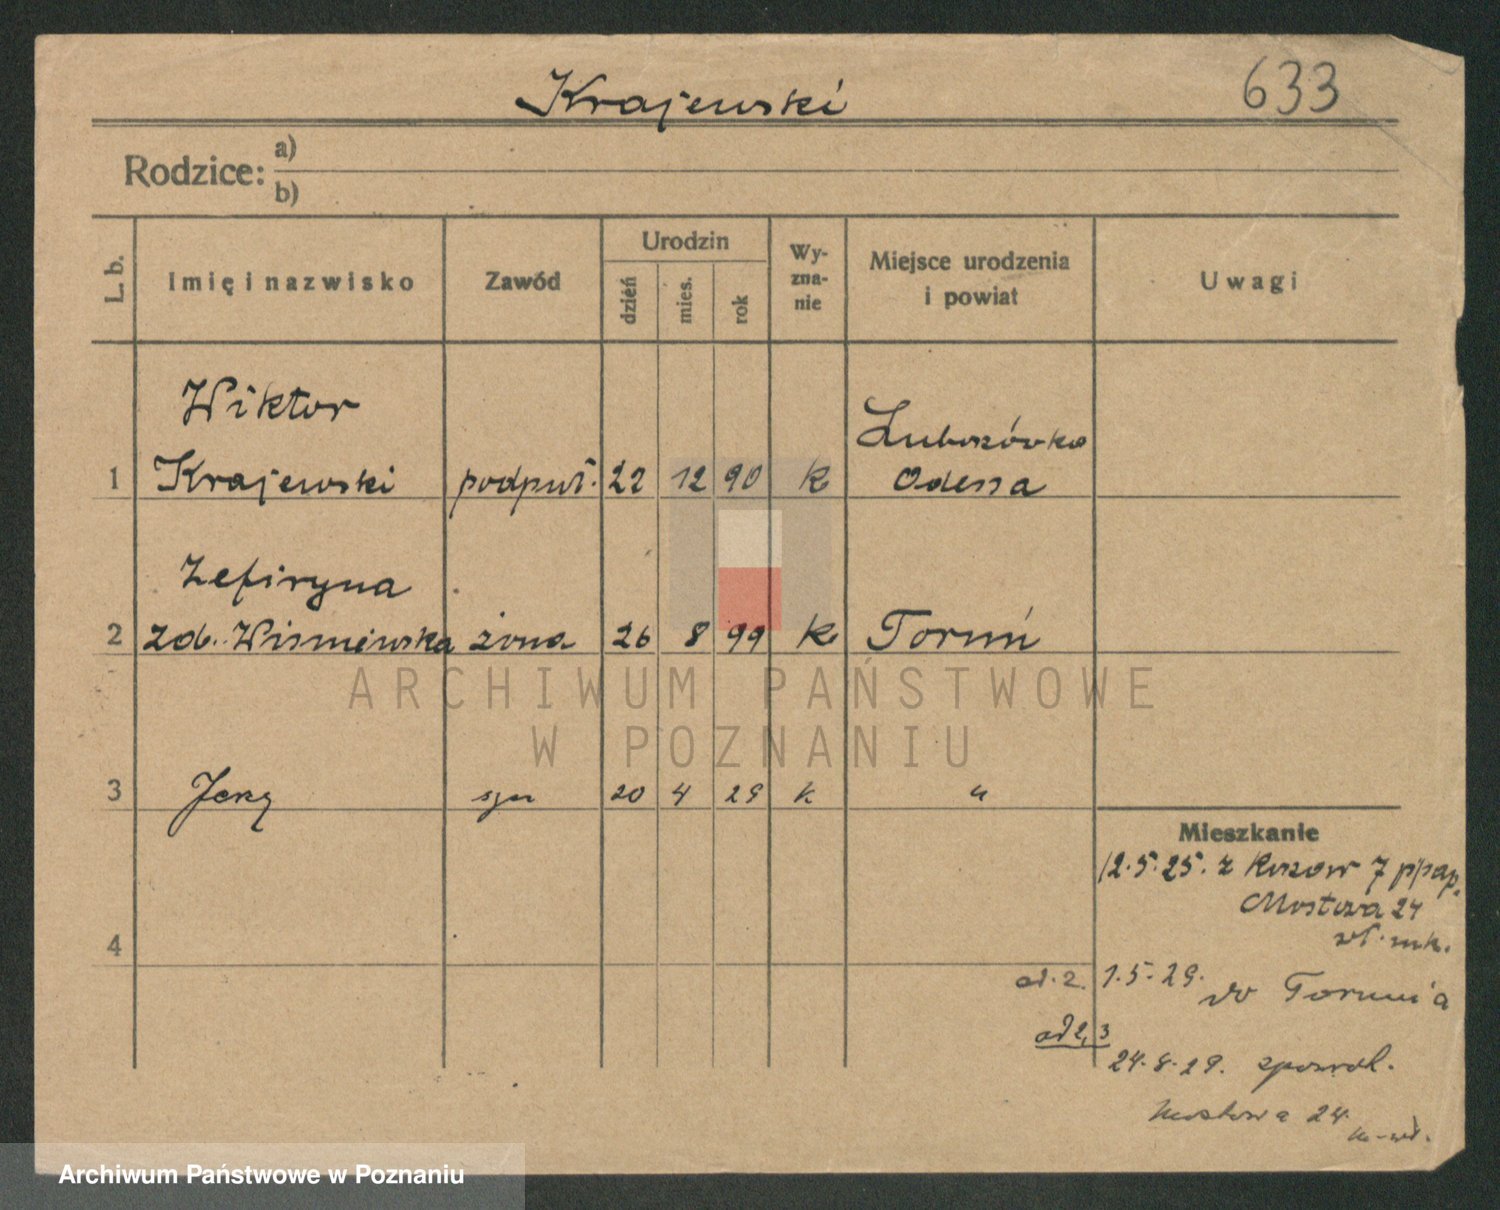 Krajewski
633
Rodzice: a)
b)
L. b.
Imię i nazwisko
Zawód
Urodzin
dzień
mies.
rok
Wy-
zna-
nie
Miejsce urodzenia
i powiat
Uwagi
Wiktor
1 Krajewski podpuł. 22 12 90 k
Odessa
Zefiryna
2 zd. Wiśniewska żona 26 8 99 k Toruń
3 Jerzy syn 20 4 29 k "
4
Mieszkanie
12.5.25. z 7 p/sap.
Mostowa 24
od. 2. 1.5.29.
do Torunia
od 2, 3
24.8.29.
Mostowa 24
ARCHIWUM PAŃSTWOWE
W POZNANIU
Archiwum Państwowe w Poznaniu